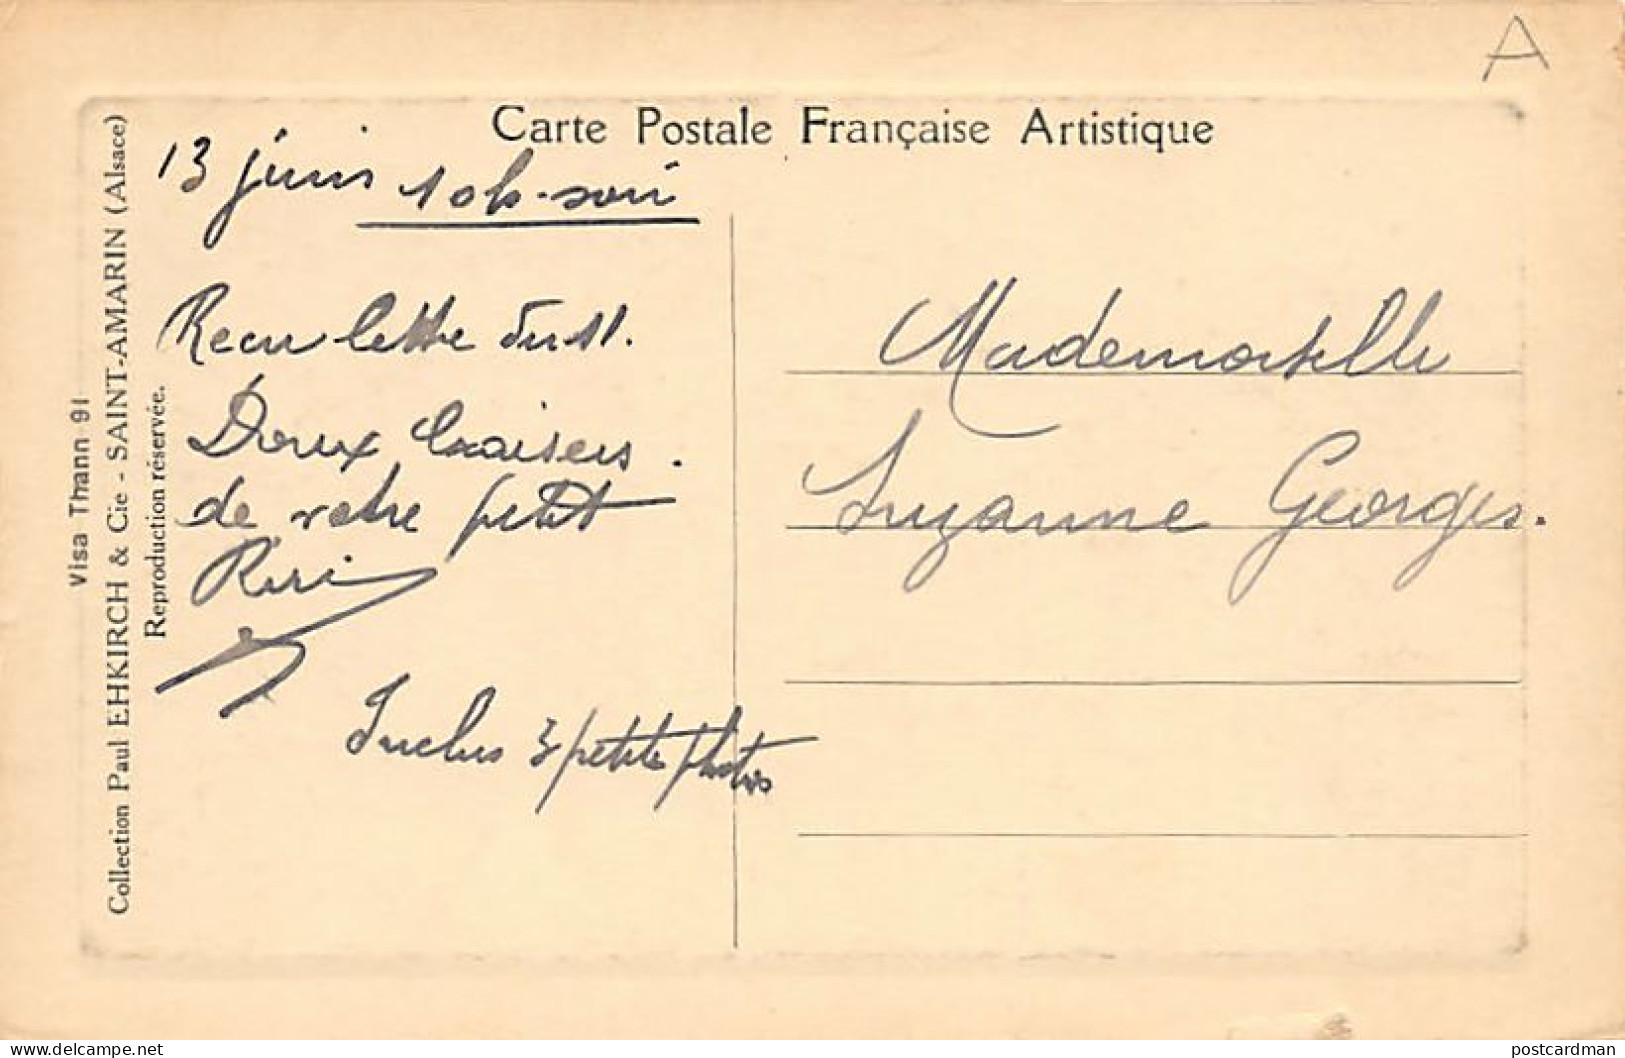 A
Carte Postale Française Artistique
13 juin 10h-soir
Recu lettre du 11.
Doux baisers.
de votre petit
Riri
Inclus 3 petites photos
Mademoiselle
Suzanne Georges.
Visa Thann 91
Collection Paul EHKIRCH & Cie - SAINT-AMARIN (Alsace)
Reproduction réservée.
delcampe.net
postcardman